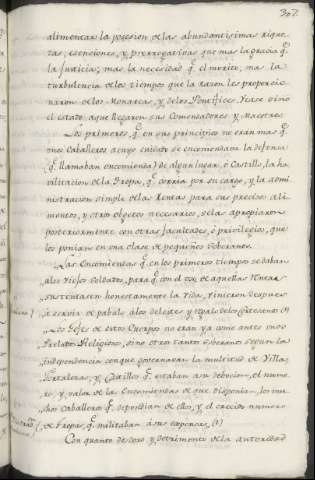 307
alimentar la posesion de las abundantisimas rique-
zas, esenciones, y prerrogativas que mas la gracia q.e
la Justicia; mas la necesidad q.e el merito; mas la
turbulencia de los tiempos que la razon les proporcio
naron de los Monarcas, y de los Pontifices. Vease aqui
el estado a que llegaron sus Comendadores y Maestres
Los primeros q.e en sus principios no eran mas q.e
unos Caballeros a cuyo cuidado se encomendava la defensa
q.e llamaban encomienda) de algun lugar, ó Castillo, la ha-
vilitacion de la Tropa, q.e corria por su cargo, y la admi-
nistracion simple de las Rentas para sus precisos ali-
mentos, y otros objetos necesarios, se las apropiaron
posteriormente con otras facultades, ó privilegios, que
los ponian en una clase de pequeños Soberanos.
Las Encomiendas q.e en los primeros tiempos se daban
a los viejos soldados, para q.e con el de aquellas Rentas
sustentasen honestamente la vida, vinieron despues
á servir de pabulo a los deleites y regalo de los Cortesanos
Los Gefes de estos Cuerpos no eran ya como antes unos
Prelados Religiosos, sino otros tantos Soberanos segun la
Independencia con que governavan la multitud de Villas,
Fortalezas, y Castillos q.e estaban a su debocion, el nume-
ro, y valor de las Encomiendas de que disponian, los mu-
chos Caballeros q.e dependian de ellos, y el crecido numero
de Tropas, q.e militaban á sus expensas, (1)
Con quanto de soro y detrimento de la autoridad